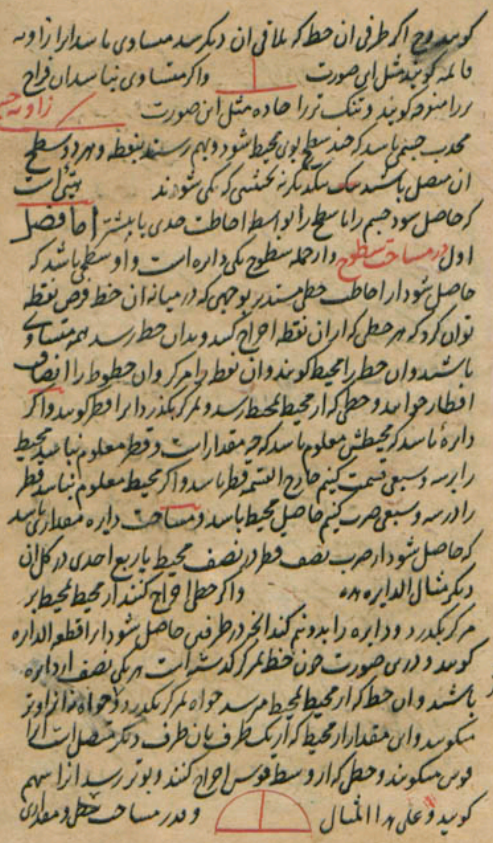 کویند وح اکر طرفی ان خط که بملاقی ان دیکر رسد متساوی باشد انرا زاویه
قایمه کویند مثل این صورت واکر متساوی نباشد ان فراخ
را منفرجه کویند و تنک تر را حاده مثل این صورت زاویه
جسمی باشد که چند سطح بوی محیط شود و بهم رسند بنقطه و هر دو سطح
ان متصل باشند یک بدیکر نه بحیثی که یکی شوند هیئتی است
که حاصل شود جسم را یا سطح را بواسطه احاطت حدی یا بیشتر اما فصل
اول در مساحت سطوح و از جمله سطوح یکی دایره است و او سطحی باشد که
حاصل شود از احاطت خطی مستدیر بوجهی که در میانه ان خط فرض نقطه
توان کرد که هر خطی که از ان نقطه اخراج کنند و بدان خط رسد همه متساوی
باشند و ان خط را محیط کویند و ان نقطه را مرکز و ان خطوط را انصاف
اقطار خوانند و خطی که از محیط بمحیط رسد و بمرکز بکذرد انرا قطر کویند و اکر
دایرهٔ باشد که محیطش معلوم باشد که چه مقدار است و قطر معلوم نباشد محیط
را بر سه و سبعی قسمت کنیم خارج القسمه قطر باشد و اکر محیط معلوم نباشد قطر
را در سه و سبعی ضرب کنیم حاصل محیط باشد و مساحت دایره مقداری باشد
که حاصل شود از ضرب نصف قطر در نصف محیط یا ربع احدی در کل ان
دیکر مثال الدایره هذه و اکر خطی اخراج کنند از محیط بمحیط بر
مرکز بکذرد و دایره را بدو نیم کند انچه در طرفین حاصل شود انرا قطعة الدایره
کویند و درین صورت چون خط بمرکز کذشته است هر یکی نصف از دایره
باشند و ان خط که از محیط بمحیط میرسد خواه بمرکز بکذرد و خواه نه انرا وتر
میکویند و ان مقدار از محیط که از یک طرف بان طرف دیکر متصل است انرا
قوس میکویند و خطی که از وسط قوس اخراج کنند و بوتر رسد انرا سهم
کویند و علی هذا المثال و قدر مساحت خطی و مقداری